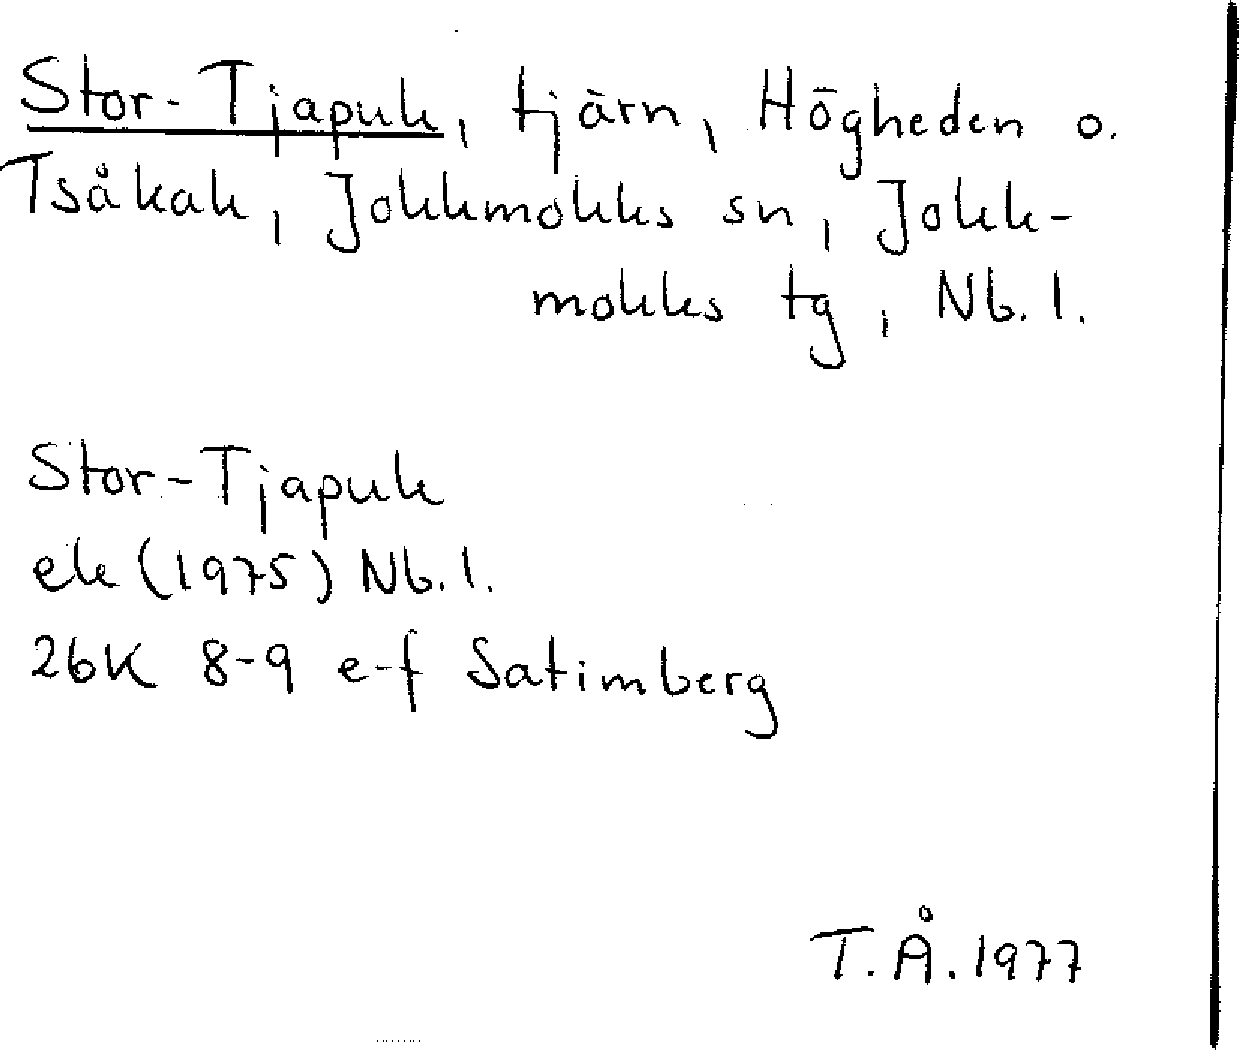 Stor-Tjapuk, tjärn, Högheden o.
Tsåkak, Jokkmokks sn, Jokk-
mokks tg, Nb. l.
Stor-Tjapuk
ek (1975) Nb. l.
26K 8-9 e-f Satimberg
T.Å. 1977